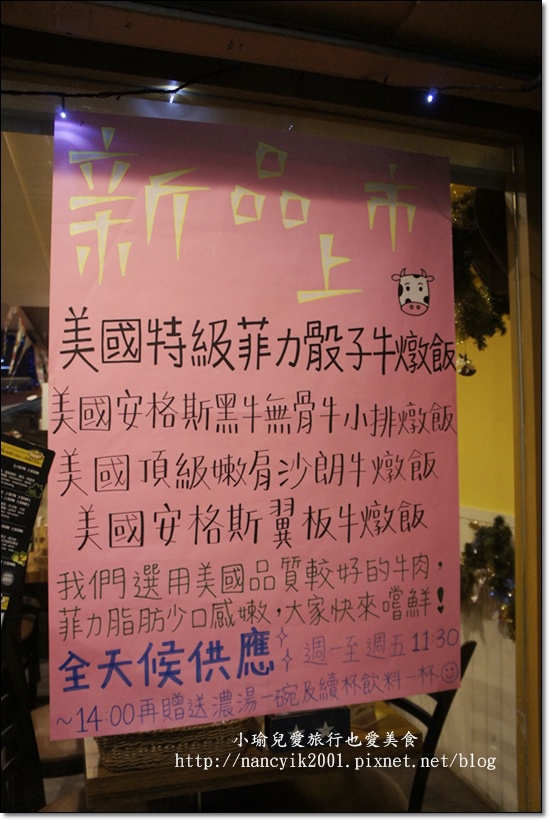 新品上市
美國特級菲力骰子牛燉飯
美國安格斯黑牛無骨牛小排燉飯
美國頂級嫩肩沙朗牛燉飯
美國安格斯翼板牛燉飯
我們選用美國品質較好的牛肉，
菲力脂肪少口感嫩，大家快來嚐鮮！
全天候供應 週一至週五 11:30
~14:00再贈送濃湯一碗及續杯飲料一杯
小瑜兒愛旅行也愛美食
http://nancyik2001.pixnet.net/blog